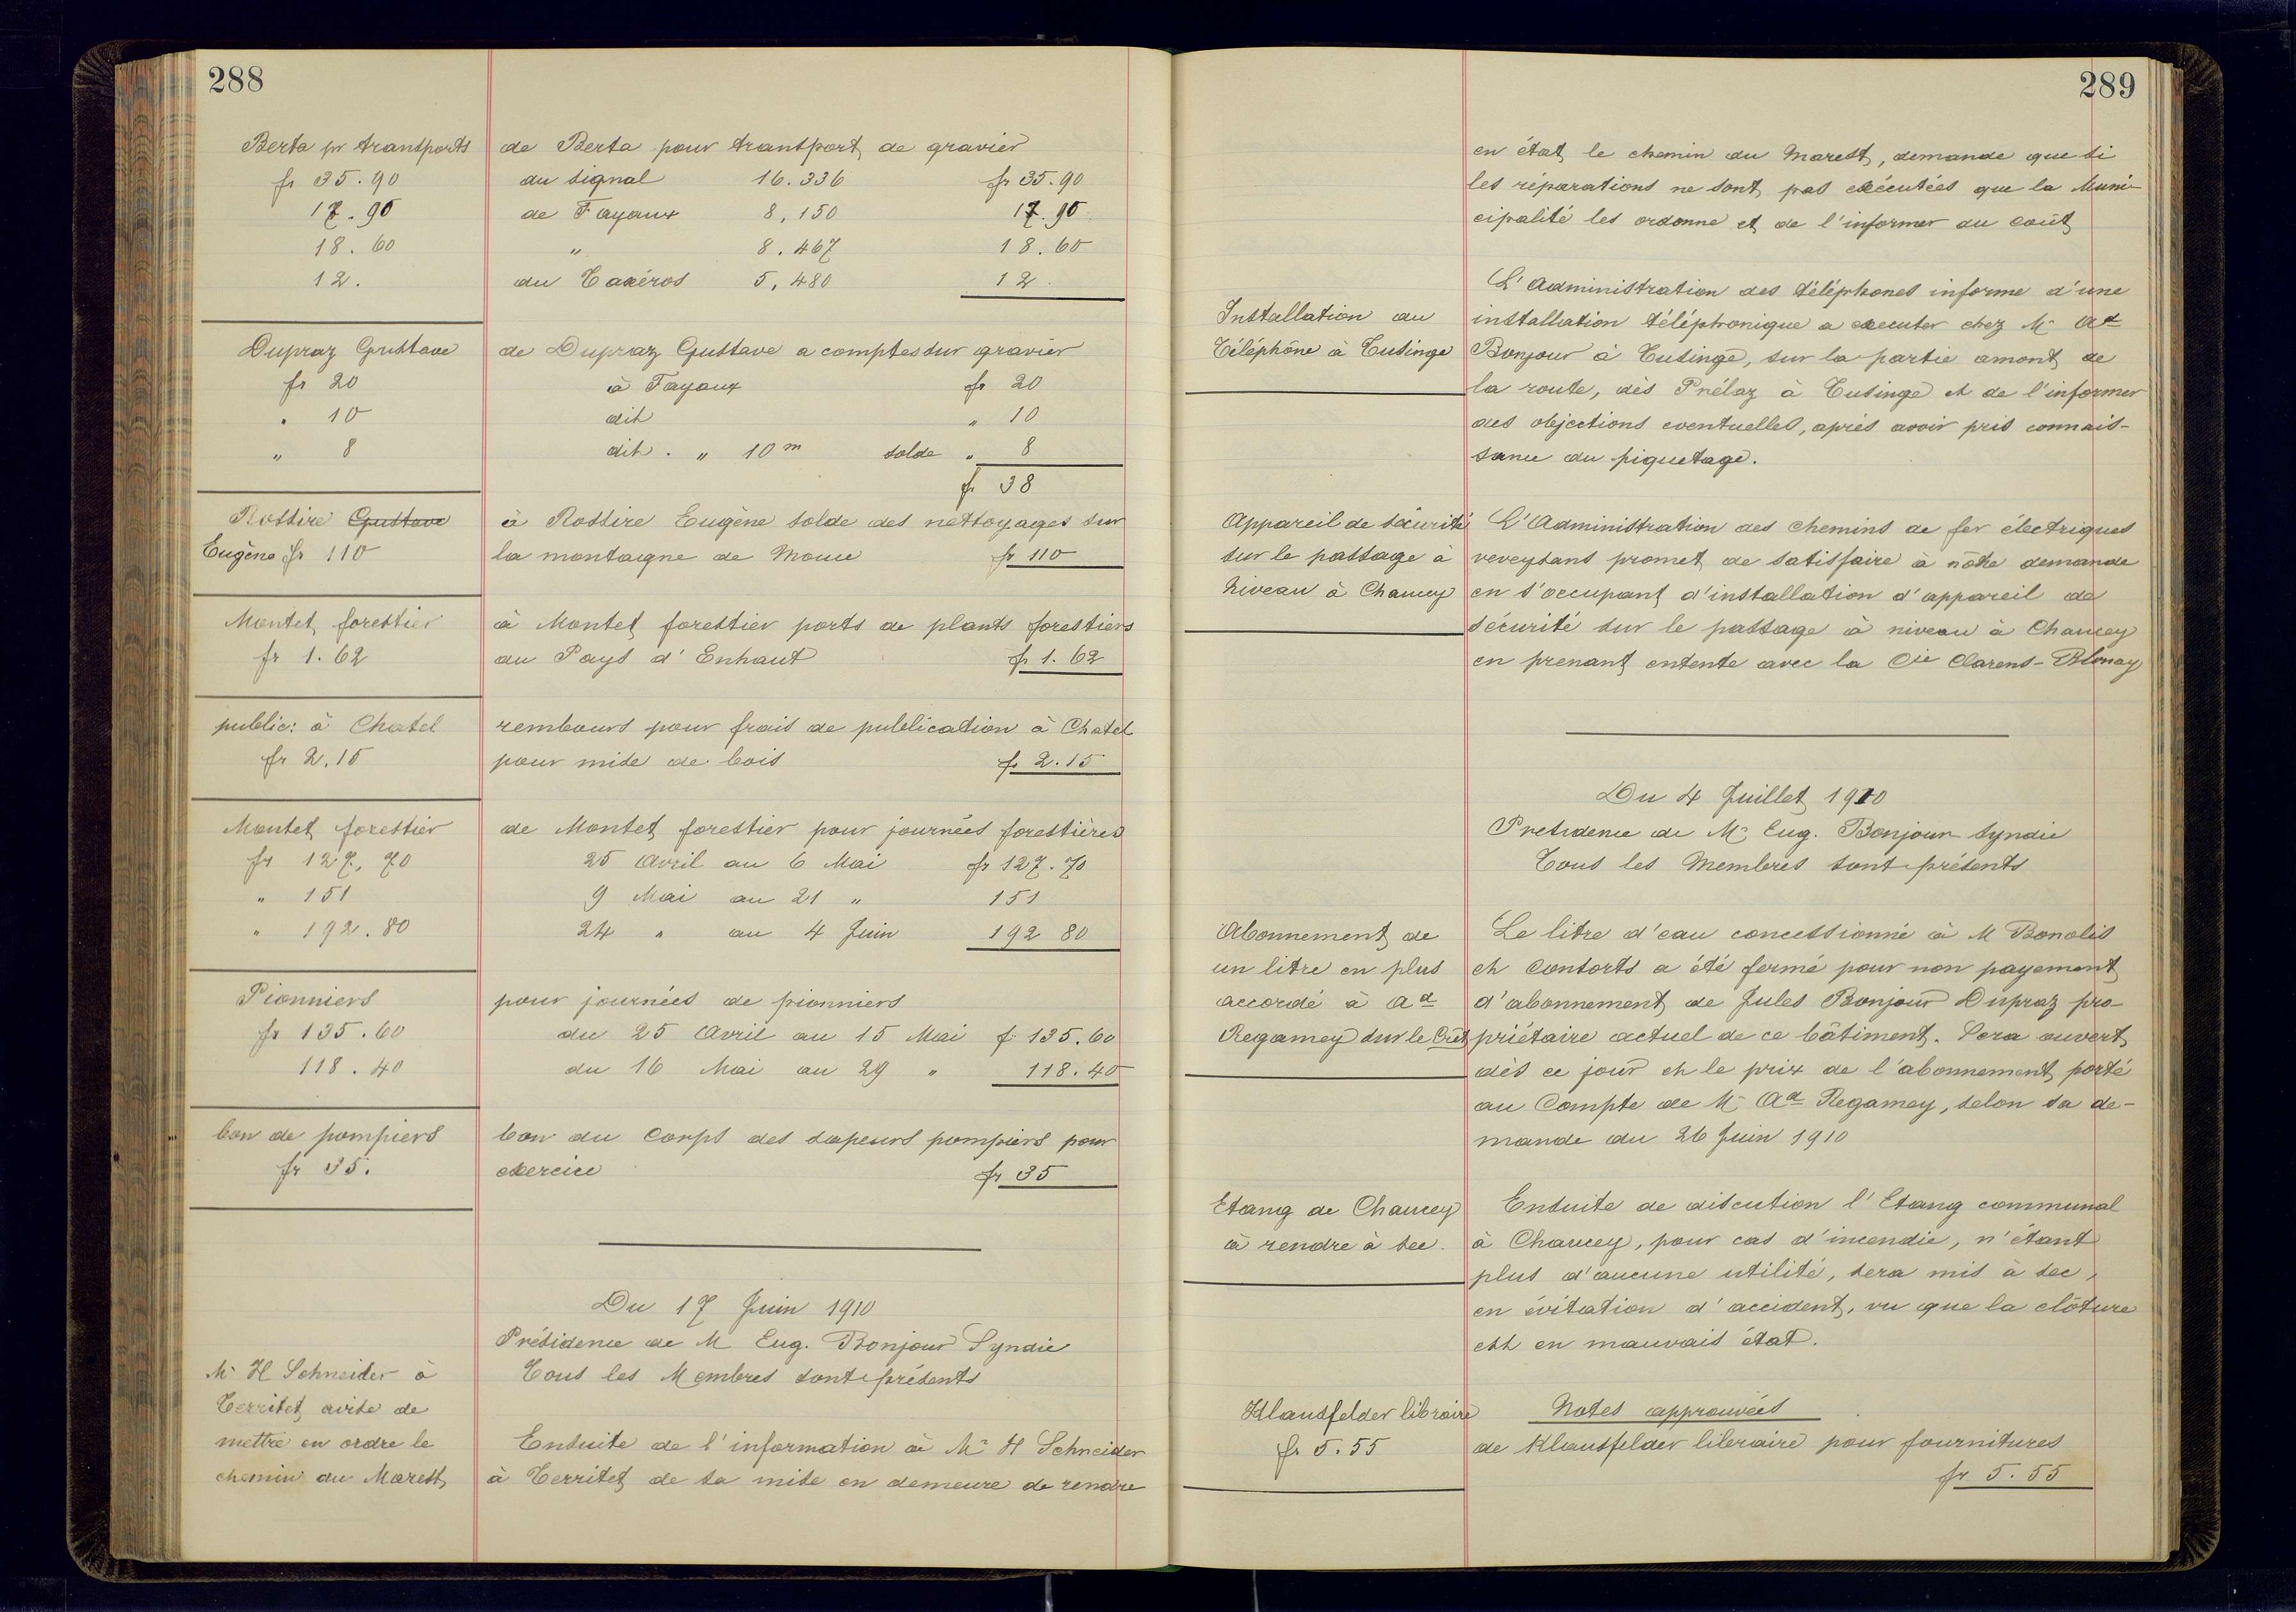 288
Berta pr transports
fr 35.90
17.90
18.60
12.
de Berta pour transport de gravier
du signal 16.336 fr 35.90
de Fayaux 8,150 17.90
" 8.467 18.60
du 5,480 12.
Dupraz Gustave
fr 20
" 10
" 8
de Dupraz Gustave a comptes sur gravier
à Fayaux fr 20
dit " 10
dit . " 10 m solde " 8
fr 38
Rossire Gustave
Eugène fr 110
à Rossire Eugène solde des nettoyages sur
la montagne de fr 110
Montet forestier
fr 1.62
à Montet forestier ports de plants forestiers
au Pays d'Enhaut fr 1.62
public: à Chatel
fr 2.15
rembours pour frais de publication à Chatel
pour mise de bois fr 2.15
Montet forestier
fr 127,70
" 151
" 192.80
de Montet forestier pour journées forestières
25 Avril au 6 Mai fr 127.70
9 Mai au 21 " 151
24 " au 4 Juin 192 80
Pionniers
fr 135.60
118.40
pour journées de pionniers
du 25 Avril au 15 Mai fr 135.60
du 16 Mai au 29 " 118.40
bon de pompiers
fr 35.
bon du Corps des sapeurs pompiers pour
exercice fr 35
Du 17 Juin 1910
Présidence de M Eug. Bonjour Syndic
Tous les Membres sont présents
Mr H Schneider à
Territet avisé de
mettre en ordre le
chemin du Marest
Ensuite de l'information à Mr H Schneider
à Territet de sa mise en demeure de rendre
289
en état le chemin du Marest, demande que si
les réparations ne sont pas exécutées que la Muni-
cipalité les ordonne et de l'informer du coût
Installation du
Téléphone à Tusinge
L'Administration des téléphones informe d'une
installation téléphonique a executer chez Mr Ad
Bonjour à Tusinge, sur la partie amont de
la route, dès Prélaz à Tusinge et de l'informer
des objections eventuelles, après avoir pris connais-
sance du piquetage.
Appareil de sécurité
sur le passage à
Niveau à Chaucey
L'Administration des chemins de fer électriques
veveysans promet de satisfaire à nôtre demande
en s'occupant d'installation d'appareil de
sécurité sur le passage à niveau à Chaucey
en prenant entente avec la Cie Clarens-Blonay
Du 4 Juillet 1910
Presidence de Mr Eug. Bonjour Syndic
Tous les Membres sont présents
Abonnement de
un litre en plus
accordé à Ad
Regamey sur le Crêt
Le litre d'eau concessionné à M Bonolis
et Consorts a été fermé pour non payement
d'abonnement de Jules Bonjour Dupraz pro-
priétaire actuel de ce bâtiment. Sera ouvert
dès ce jour et le prix de l'abonnement porté
au Compte de Mr Ad Regamey, selon sa de-
mande du 26 Juin 1910
Etang de Chaucey
à rendre à sec.
Ensuite de discution l'Etang communal
à Chaucey, pour cas d'incendie, n'étant
plus d'aucune utilité, sera mis à sec,
en évitation d'accident, vu que la clôture
est en mauvais état.
Klausfelder libraire
fr 5.55
Notes approuvées
de Klausfelder libraire pour fournitures
fr 5.55